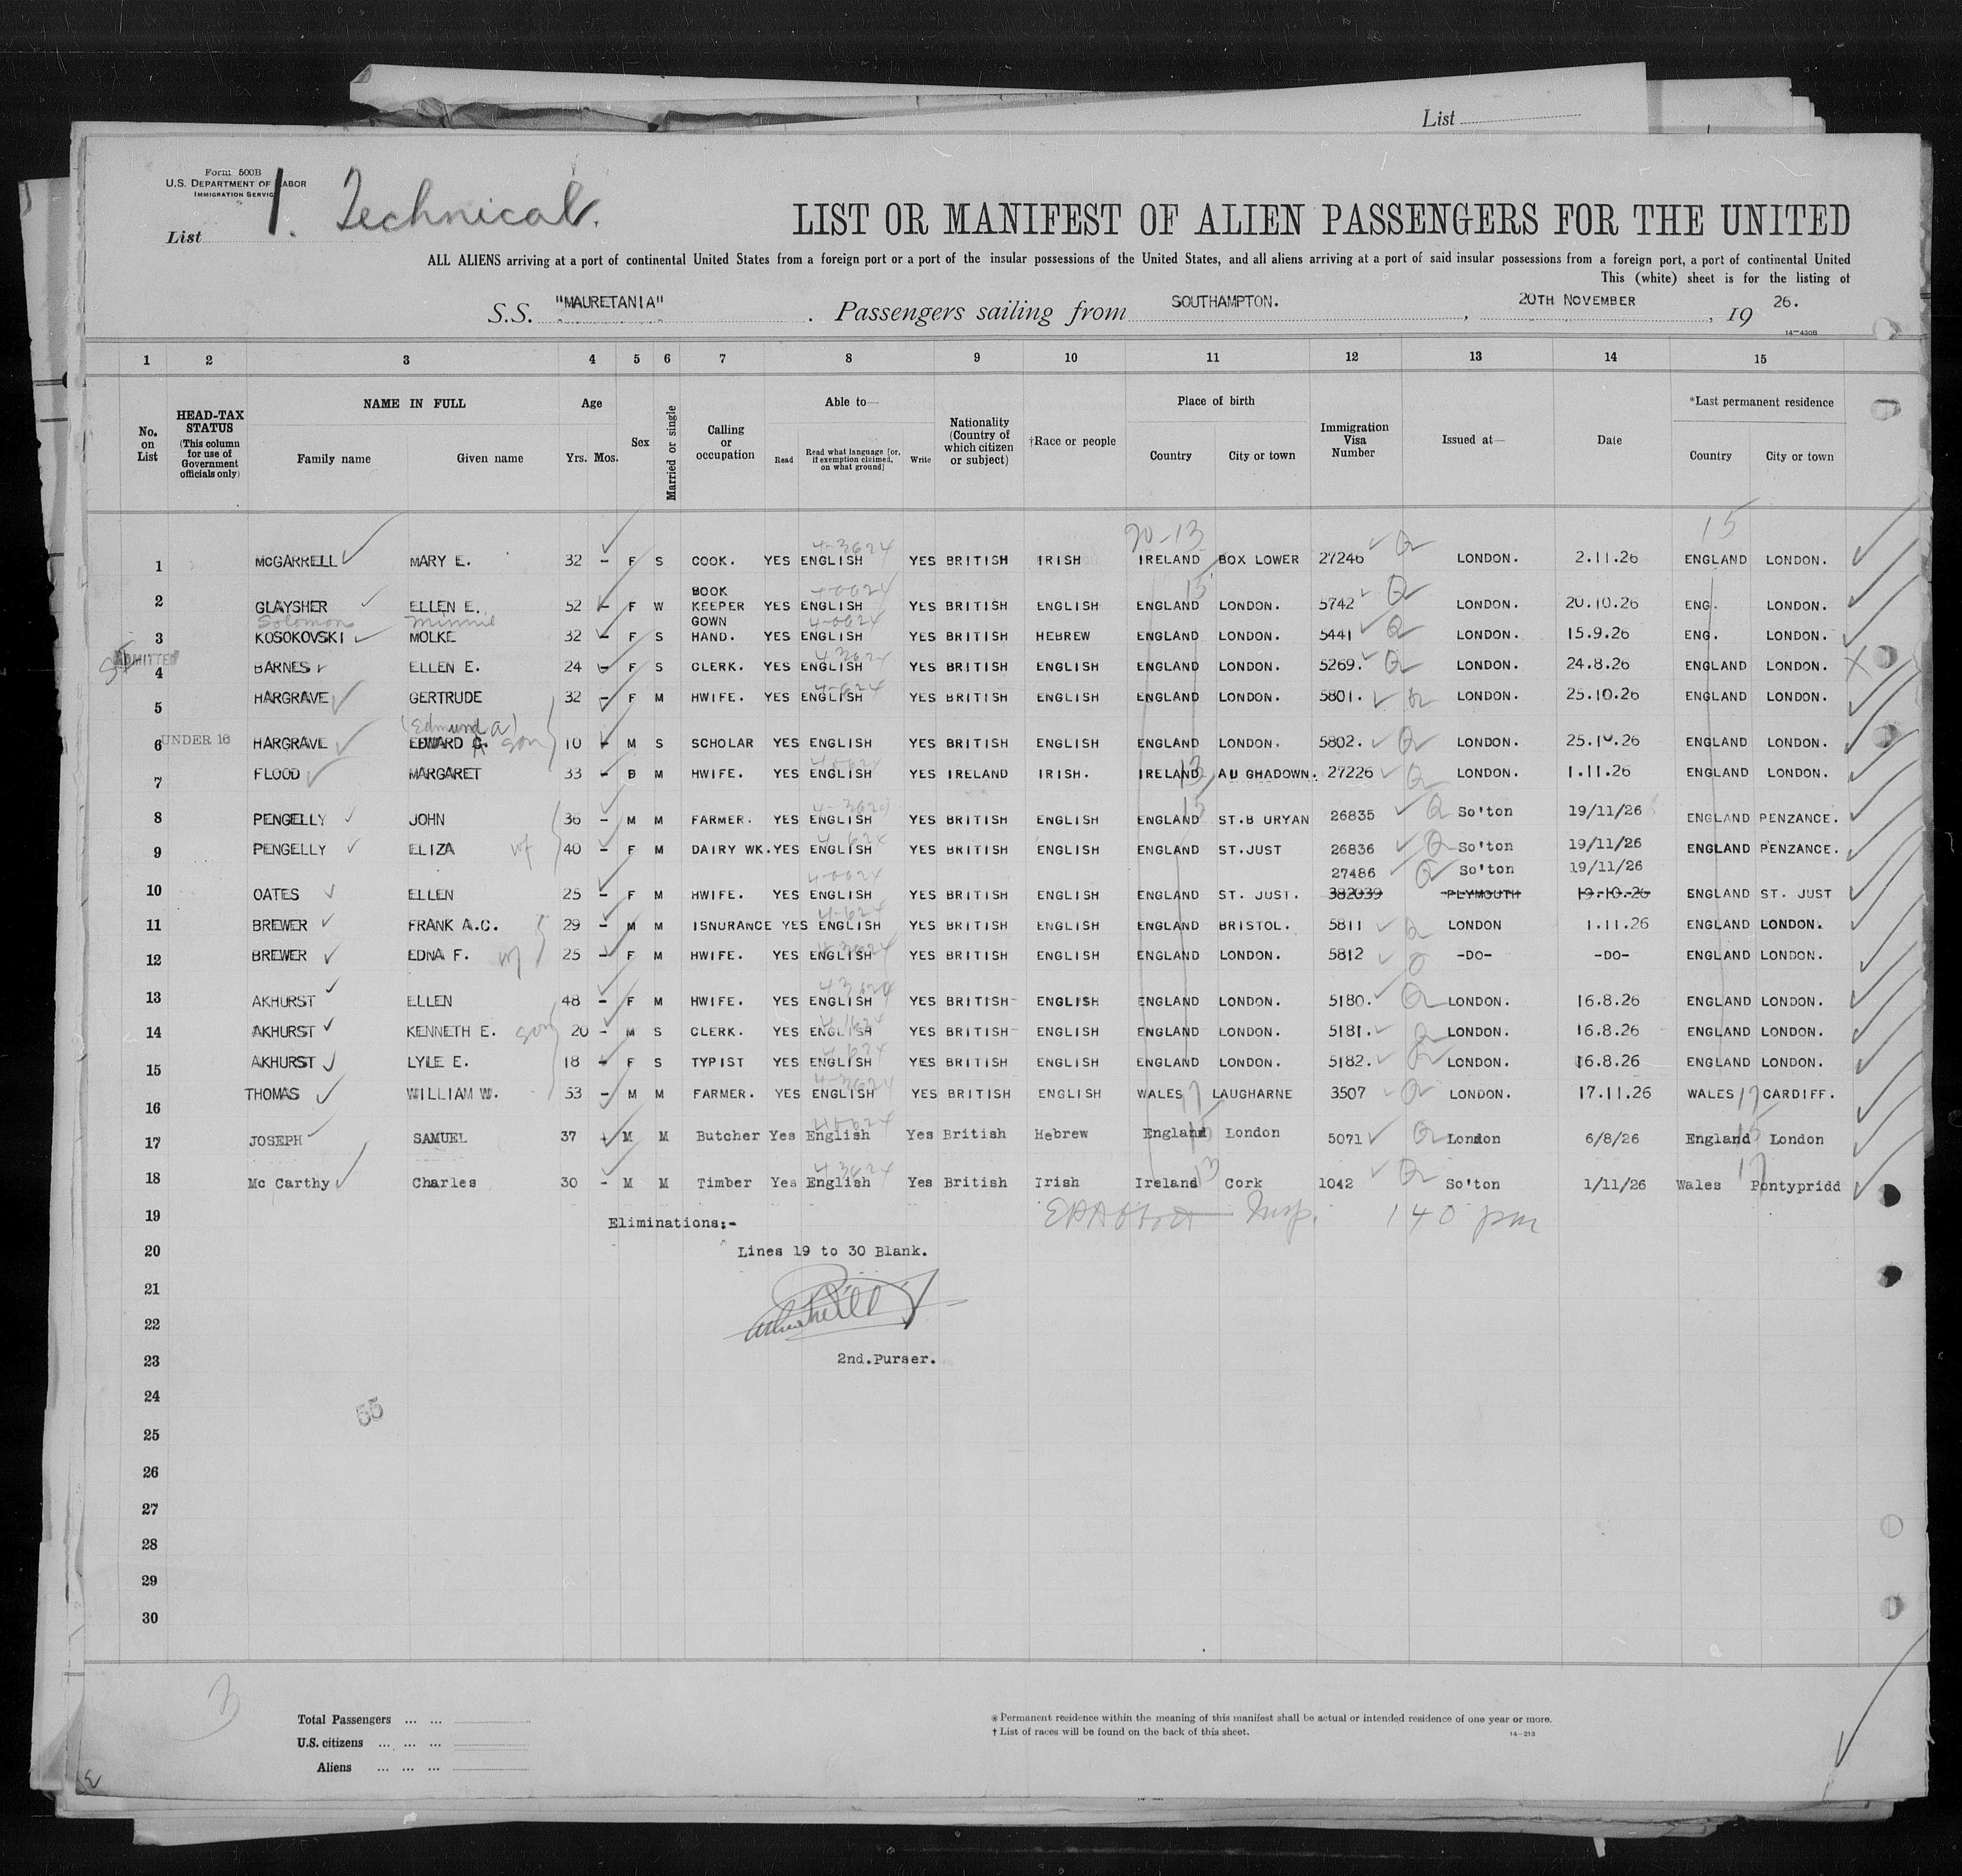 List
Form 500B
U.S. DEPARTMENT OF LABOR
IMMIGRATION SERVICE
List 1. Technical.
LIST OR MANIFEST OF ALIEN PASSENGERS FOR THE UNITED
ALL ALIENS arriving at a port of continental United States from a foreign port or a port of the insular possessions of the United States, and all aliens arriving at a port of said insular possessions from a foreign port, a port of continental United
This (white) sheet is for the listing of
S.S. "MAURETANIA" . Passengers sailing from SOUTHAMPTON. , 20TH NOVEMBER , 19 26.
14-430B
1 2 3 4 5 6 7 8 9 10 11 12 13 14 15
No. on List
HEAD-TAX STATUS (This column for use of Government officials only)
NAME IN FULL Family name Given name
Age Yrs. Mos.
Sex
Married or single
Calling or occupation
Able to— Read Read what language [or, if exemption claimed, on what ground] Write
Nationality (Country of which citizen or subject)
†Race or people
Place of birth Country City or town
Immigration Visa Number
Issued at—
Date
*Last permanent residence Country City or town
90-13 15
4-3624
1 McGARRELL MARY E. 32 - F S COOK. YES ENGLISH YES BRITISH IRISH IRELAND BOX LOWER 27246 LONDON. 2.11.26 ENGLAND LONDON.
2 GLAYSHER ELLEN E. 52 - F W BOOK KEEPER YES ENGLISH YES BRITISH ENGLISH ENGLAND LONDON. 5742 LONDON. 20.10.26 ENG. LONDON.
Solomon Minnie
3 KOSOKOVSKI MOLKE 32 - F S GOWN HAND. YES ENGLISH YES BRITISH HEBREW ENGLAND LONDON. 5441 LONDON. 15.9.26 ENG. LONDON.
ADMITTED
4 BARNES ELLEN E. 24 - F S CLERK. YES ENGLISH YES BRITISH ENGLISH ENGLAND LONDON. 5269. LONDON. 24.8.26 ENGLAND LONDON.
5 HARGRAVE GERTRUDE 32 - F M HWIFE. YES ENGLISH YES BRITISH ENGLISH ENGLAND LONDON. 5801. LONDON. 25.10.26 ENGLAND LONDON.
(Edmund A)
6 UNDER 16 HARGRAVE EDWARD G. son 10 - M S SCHOLAR YES ENGLISH YES BRITISH ENGLISH ENGLAND LONDON. 5802. LONDON. 25.10.26 ENGLAND LONDON.
7 FLOOD MARGARET 33 - M HWIFE. YES ENGLISH YES IRELAND IRISH. IRELAND AUGHADOWN. 27226 LONDON. 1.11.26 ENGLAND LONDON.
8 PENGELLY JOHN 36 - M M FARMER. YES ENGLISH YES BRITISH ENGLISH ENGLAND ST.B URYAN 26835 So'ton 19/11/26 ENGLAND PENZANCE.
9 PENGELLY ELIZA wf 40 - F M DAIRY WK. YES ENGLISH YES BRITISH ENGLISH ENGLAND ST.JUST 26836 So'ton 19/11/26 ENGLAND PENZANCE.
27486 So'ton 19/11/26
10 OATES ELLEN 25 - F M HWIFE. YES ENGLISH YES BRITISH ENGLISH ENGLAND ST. JUST. 382039 PLYMOUTH 19.10.26 ENGLAND ST. JUST
11 BREWER FRANK A.C. 29 - M M ISNURANCE YES ENGLISH YES BRITISH ENGLISH ENGLAND BRISTOL. 5811 LONDON 1.11.26 ENGLAND LONDON.
12 BREWER EDNA F. wf 25 - F M HWIFE. YES ENGLISH YES BRITISH ENGLISH ENGLAND LONDON. 5812 -DO- -DO- ENGLAND LONDON.
13 AKHURST ELLEN 48 - F M HWIFE. YES ENGLISH YES BRITISH ENGLISH ENGLAND LONDON. 5180. LONDON. 16.8.26 ENGLAND LONDON.
14 AKHURST KENNETH E. son 20 - M S CLERK. YES ENGLISH YES BRITISH ENGLISH ENGLAND LONDON. 5181. LONDON. 16.8.26 ENGLAND LONDON.
15 AKHURST LYLE E. 18 - F S TYPIST YES ENGLISH YES BRITISH ENGLISH ENGLAND LONDON. 5182. LONDON. 16.8.26 ENGLAND LONDON.
16 THOMAS WILLIAM W. 53 - M M FARMER. YES ENGLISH YES BRITISH ENGLISH WALES LAUGHARNE 3507 LONDON. 17.11.26 WALES 17 CARDIFF.
17 JOSEPH SAMUEL 37 M M Butcher Yes English Yes British Hebrew England London 5071 London 6/8/26 England London
18 Mc Carthy Charles 30 - M M Timber Yes English Yes British Irish Ireland 13 Cork 1042 So'ton 1/11/26 Wales 17 Pontypridd
19 Eliminations:- Insp. 140 pm
20 Lines 19 to 30 Blank.
21
22
23 2nd.Purser.
24
55
25
26
27
28
29
30
3
Total Passengers ... ...
U.S. citizens ... ... ...
Aliens ... ... ...
* Permanent residence within the meaning of this manifest shall be actual or intended residence of one year or more.
† List of races will be found on the back of this sheet. 14-213